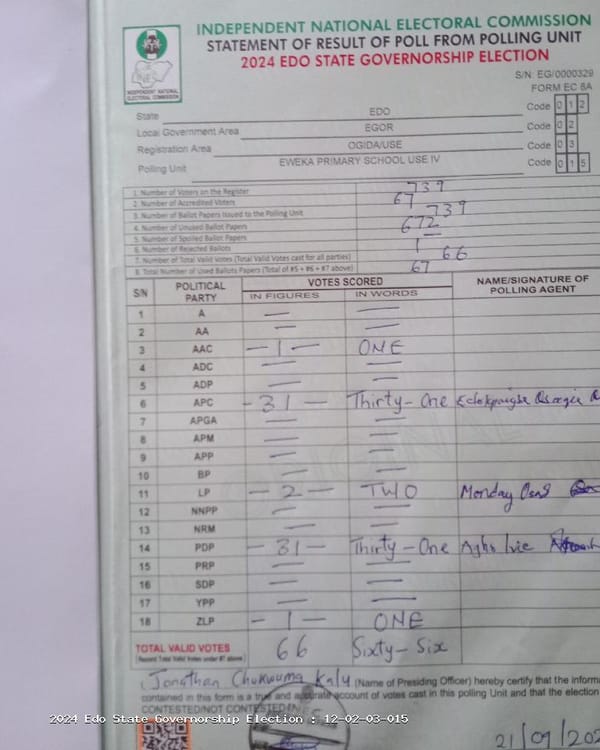 INDEPENDENT NATIONAL ELECTORAL COMMISSION
STATEMENT OF RESULT OF POLL FROM POLLING UNIT
2024 EDO STATE GOVERNORSHIP ELECTION
INDEPENDENT NATIONAL ELECTORAL COMMISSION
S/N: EG/0000329
FORM EC 8A
State EDO Code 0 1 2
Local Government Area EGOR Code 0 2
Registration Area OGIDA/USE Code 0 3
Polling Unit EWEKA PRIMARY SCHOOL USE IV Code 0 1 5
1. Number of Voters on the Register 739
2. Number of Accredited Voters 67
3. Number of Ballot Papers Issued to the Polling Unit 739
4. Number of Unused Ballot Papers 672
5. Number of Spoiled Ballot Papers —
6. Number of Rejected Ballots 1
7. Number of Total Valid Votes (Total Valid Votes cast for all parties) 66
8. Total Number of Used Ballots Papers (Total of #5 + #6 + #7 above) 67
S/N POLITICAL PARTY VOTES SCORED NAME/SIGNATURE OF POLLING AGENT
IN FIGURES IN WORDS
1 A — —
2 AA — —
3 AAC — 1 — ONE
4 ADC — —
5 ADP — —
6 APC - 31 — Thirty - One
7 APGA — —
8 APM — —
9 APP — —
10 BP — —
11 LP — 2 — TWO Monday
12 NNPP — —
13 NRM — —
14 PDP — 31 — Thirty - One
15 PRP — —
16 SDP — —
17 YPP — —
18 ZLP — 1 — ONE
TOTAL VALID VOTES 66 Sixty - Six
I Jonathan Chukwuma Kalu (Name of Presiding Officer) hereby certify that the informa
contained in this form is a true and accurate account of votes cast in this polling Unit and that the election
CONTESTED/NOT CONTESTED
2024 Edo State Governorship Election : 12-02-03-015
21/09/202